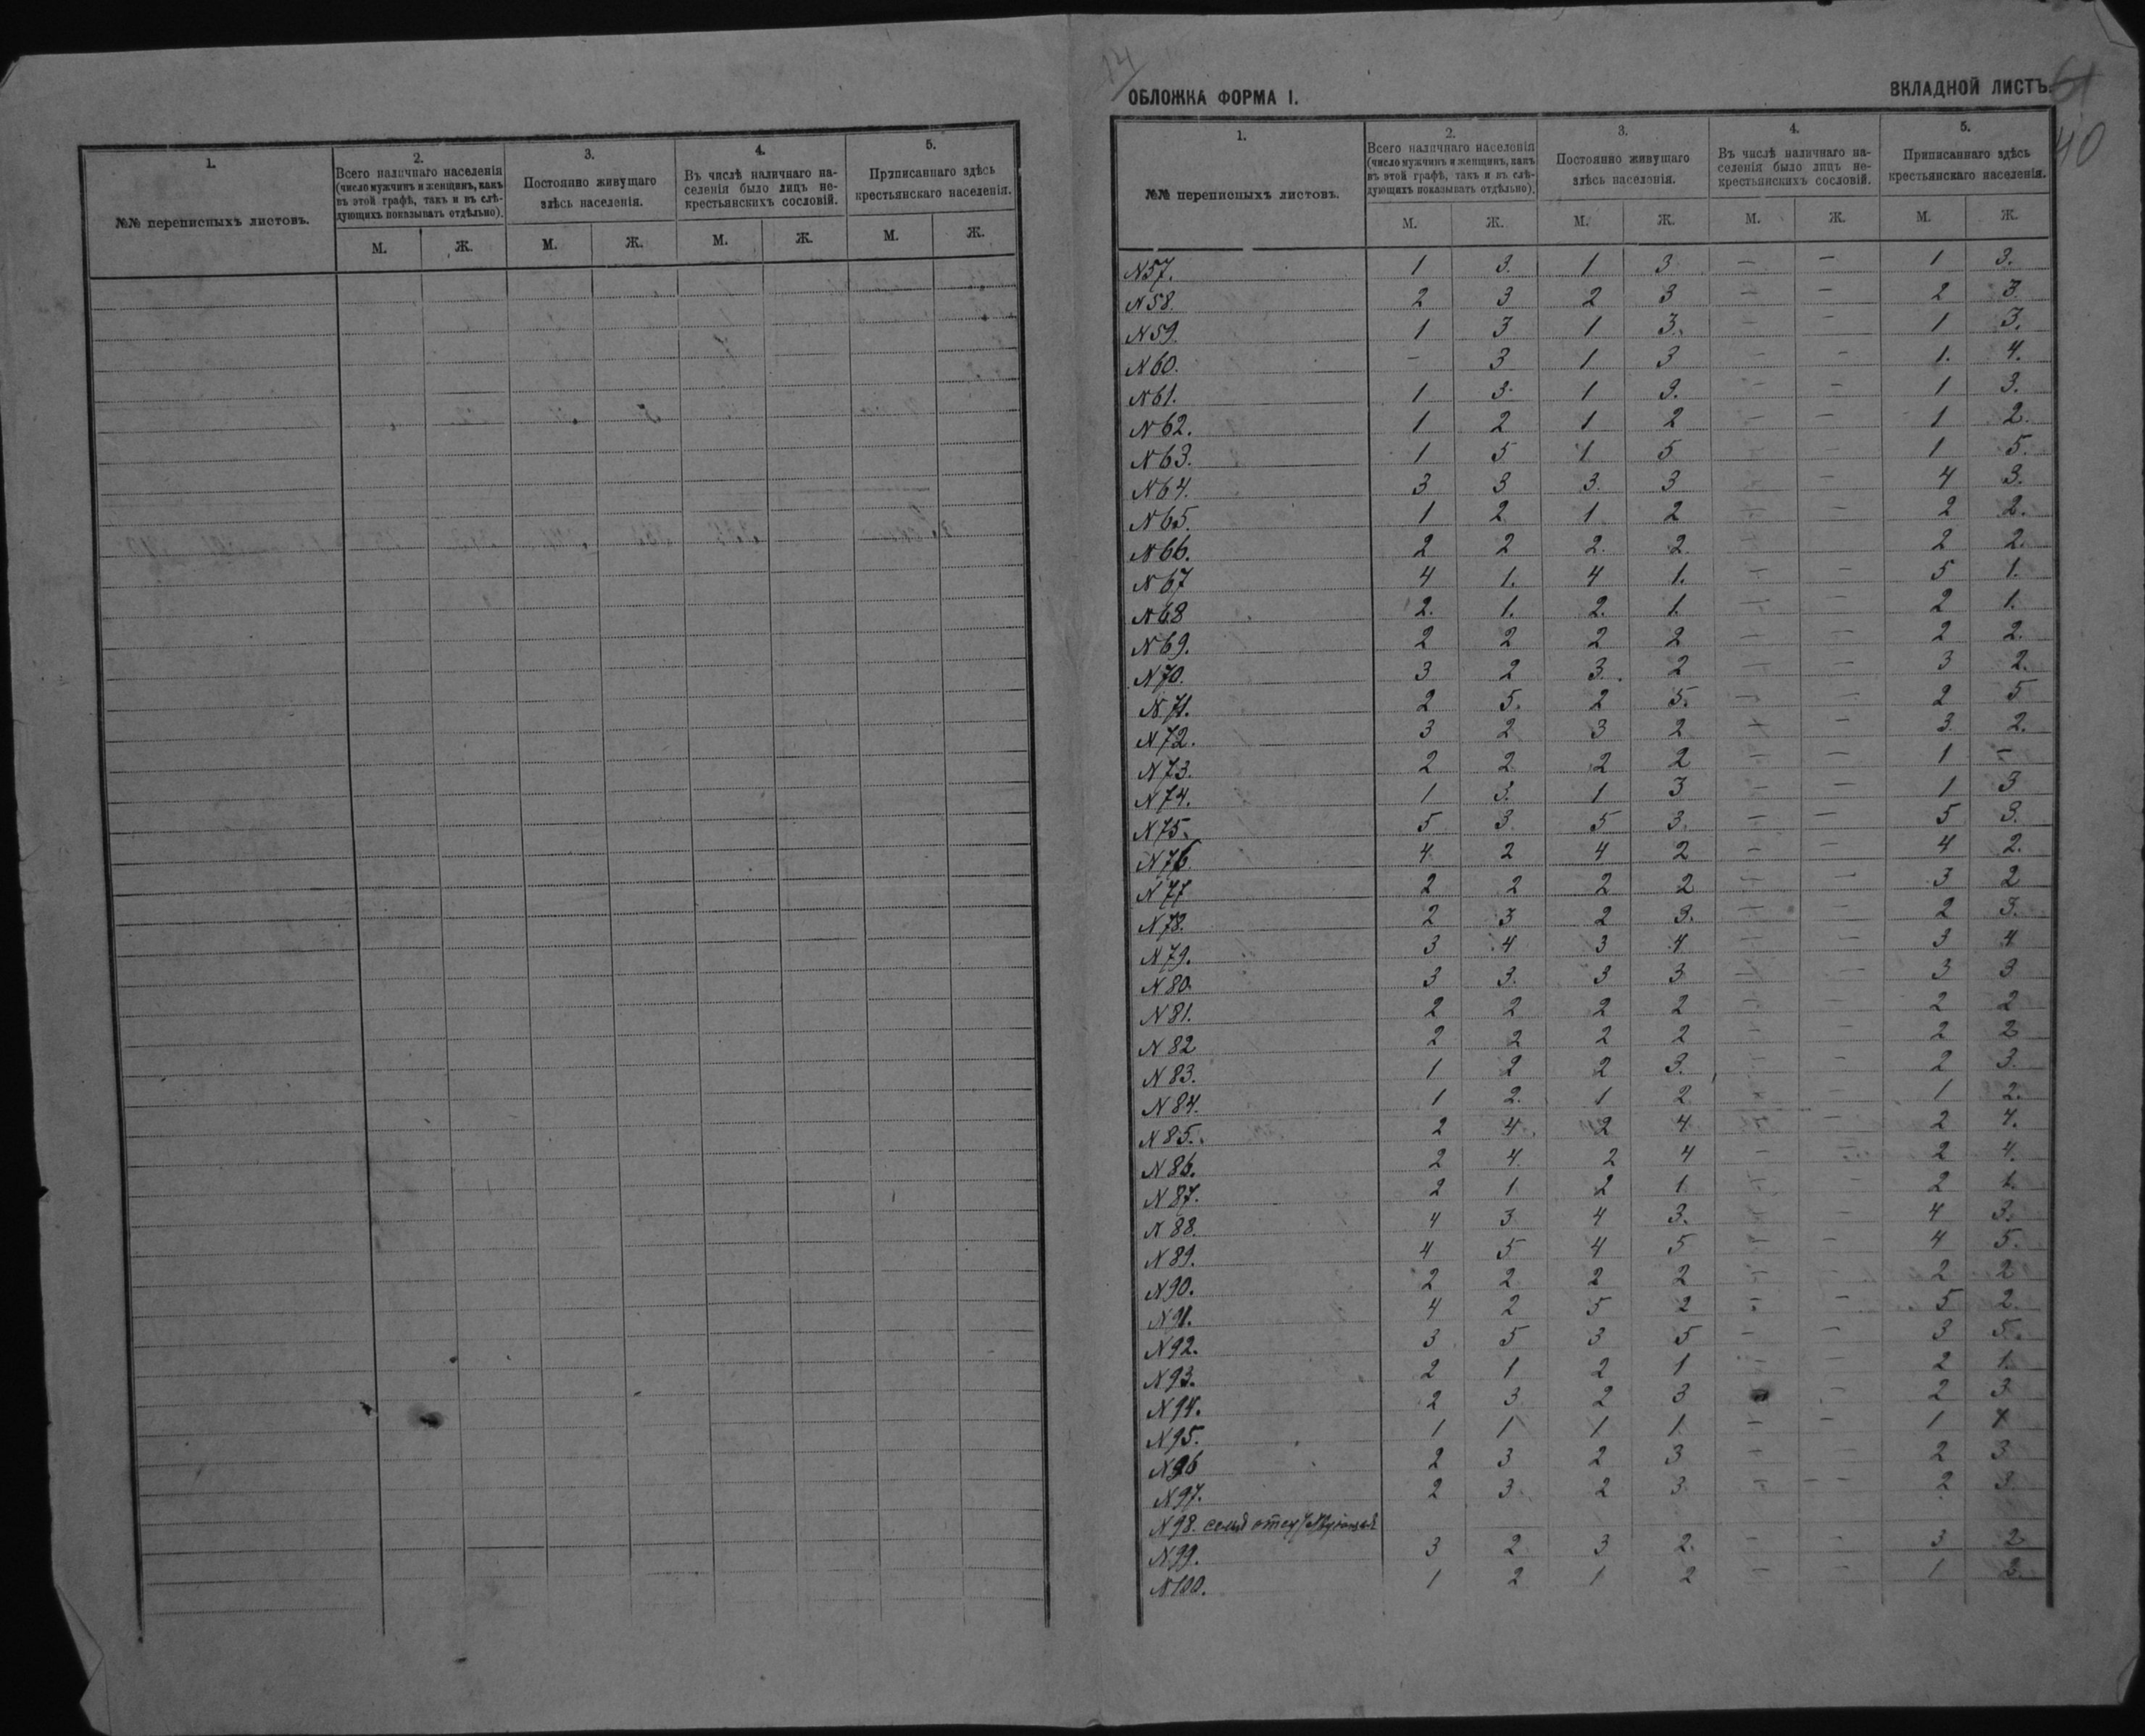 14
ОБЛОЖКА ФОРМА I.
ВКЛАДНОЙ ЛИСТЪ.
61
40
1. 2. 3. 4. 5.
№№ переписныхъ листовъ.
Всего наличнаго населенія (число мужчинъ и женщинъ, какъ въ этой графѣ, такъ и въ слѣдующихъ показывать отдѣльно).
Постоянно живущаго здѣсь населенія.
Въ числѣ наличнаго населенія было лицъ некрестьянскихъ сословій.
Приписаннаго здѣсь крестьянскаго населенія.
М. Ж. М. Ж. М. Ж. М. Ж.
1. 2. 3. 4. 5.
№№ переписныхъ листовъ.
Всего наличнаго населенія (число мужчинъ и женщинъ, какъ въ этой графѣ, такъ и въ слѣдующихъ показывать отдѣльно).
Постоянно живущаго здѣсь населенія.
Въ числѣ наличнаго населенія было лицъ некрестьянскихъ сословій.
Приписаннаго здѣсь крестьянскаго населенія.
М. Ж. М. Ж. М. Ж. М. Ж.
N 57. 1 3. 1 3 — — 1 3.
N 58. 2 3 2 3 — — 2 3
N 59. 1 3 1 3. — — 1 3.
N 60. — 3 1 3 — — 1. 4.
N 61. 1 3. 1 3. — — 1 3.
N 62. 1 2 1 2 — — 1 2.
N 63. 1 5 1 5 — — 1 5.
N 64. 3 3 3. 3 — — 4 3.
N 65. 1 2 1 2 — — 2 2.
N 66. 2 2 2. 2. — — 2 2.
N 67 4 1. 4 1. — — 5 1.
N 68 2. 1. 2. 1. — — 2 1.
N 69. 2 2 2 2 — — 2 2.
N 70. 3 2 3. 2 — — 3 2.
N 71. 2 5. 2 5. — — 2 5
N 72. 3 2 3 2 — — 3. 2.
N 73. 2 2 2 2 — — 1 —
N 74. 1 3. 1 3 — — 1 3
N 75. 5 3 5 3. — — 5 3.
N 76. 4 2 4 2 — — 4 2.
N 77 2 2 2 2 — — 3 2
N 78. 2 3 2 3. — — 2 3.
N 79. 3 4 3 4 — — 3 4
N 80. 3 3. 3 3 — — 3 3
N 81. 2 2 2 2 — — 2 2
N 82 2 2 2 2 — — 2 2
N 83. 1 2 2 3. — — 2 3.
N 84. 1 2. 1 2 — — 1 2.
N 85. 2 4. 2 4 — — 2 4.
N 86. 2 4. 2 4 — — 2 4.
N 87. 2 1 2 1 — — 2 1.
N 88. 4 3 4 3. — — 4 3.
N 89. 4 5 4 5 — — 4 5.
N 90. 2 2 2 2 — — 2 2
N 91. 4 2 5 2 — — 5 2.
N 92. 3 5 3 5 — — 3 5.
N 93. 2 1 2 1 — — 2 1.
N 94. 2 3 2 3 — 2 3
N 95. 1 1 1 1. — — 1
N 96 2 3 2 3 — 2 3
N 97. 2 3 2 3 — — — 2 3
N 98. семья
N 99. 3 2 3 2. — — 3 2
N 100. 1 2 1 2 — — 1 2.